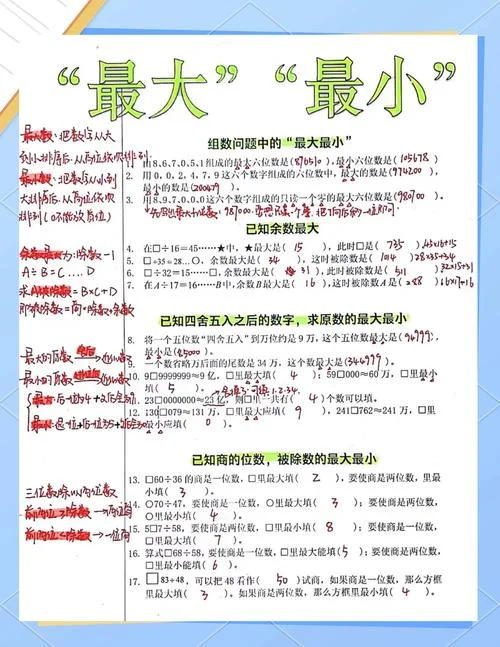 “最大” “最小”
组数问题中的“最大最小”
1. 用8,6,7,0,5,1组成的最大六位数是(876510),最小六位数是(105678)
2. 用0、0、2、4、7、9这六个数字组成的六位数中,最大的数是(974200),
最小的数是(200479)
3. 用8,9,7,0,0,0这六个数字组成的只读一个零的最大六位数是(980700)
已知余数最大
4. 在□÷16=45……★中,★最大是(15),此时□是(735) 45×16+15
5. □÷35=28…○,余数最大是(34),这时被除数是(1014) 28×35+34
6. □÷32=15……□,余数最大是(31),此时被除数是(511) 32×15+31
7. 在A÷17=16……B中,余数B最大是(16),这时被除数A是(288) 16×17+16
已知四舍五入之后的数字,求原数的最大最小
8. 将一个五位数“四舍五入”到万位约是9万,这个五位数最大是(94999),
最小是(85000)
9. 一个数省略万后面的尾数是34万,这个数最大是(344999)
10. 9□9999999≈9亿,□里最大填(4);59□000≈60万,□里最小
填(5)。
11. 23□0000000≈23亿,则□里一共有(4)个数可以填。
12. 130□079≈131万,□里最大应填(9),241□762≈241万,□里
最小应填(0)。
已知商的位数,被除数的最大最小
13. □60÷36的商是一位数,□里最大填(2),要使商是两位数,里最
小填(3)。
14. ○70÷47,要使商是一位数,○里最大填(3);要使商是两位数,○里
最小填(4)
15. 5□7÷58,要使商是两位数,□里最小填(8);要使商是一位数,□
里最大填(7)
16. 算式□68÷58,要使商是一位数,□里最大能填(5);要使商是两位数,
□里最小能填(6)
17. □83÷48,可以把48看作(50)试商,如果商是一位数,那么方框
里最大填(3),如果商是两位数,那么方框里最小填(4)。
最大数:把数字从大
到小排序后,从高位依次排列
最小数:把数字从小到
大排序后,从高位依次
排列(0不能放首位)
余数最大为:除数-1
A÷B=C....D
求A被除数=B×C+D
即被除数=商×除数+余数
三位数除以两位数
前两位≥除数→商两位
前两位<除数→一位商